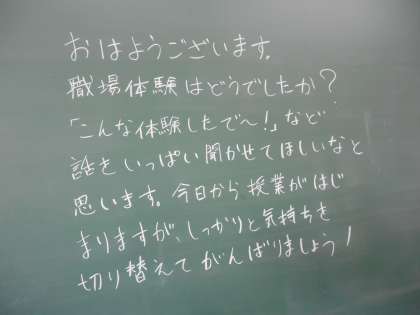 おはようございます。
職場体験はどうでしたか?
「こんな体験したで～!」など
話をいっぱい聞かせてほしいなと
思います。今日から授業がはじ
まりますが、しっかりと気持ちを
切り替えてがんばりましょう!